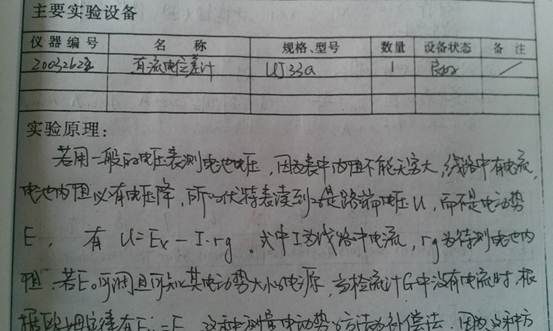 主要实验设备
仪器编号 名称 规格、型号 数量 设备状态 备注
直流电位差计 UJ33a 1 良好 /
实验原理：
若用一般的电压表测电池电压，因为表中内阻不能无穷大，线路中有电流，
电池内阻必有电压降，所以伏特表读到的是路端电压U，而不是电动势
E，有U=Ex-I·rg，式中I为线路中电流，rg为待测电池内
阻，若E0可调且可知其电动势大小的电源，当检流计G中没有电流时，根
据欧姆定律有E = E 这种测量电动势的方法为补偿法，因为这种方